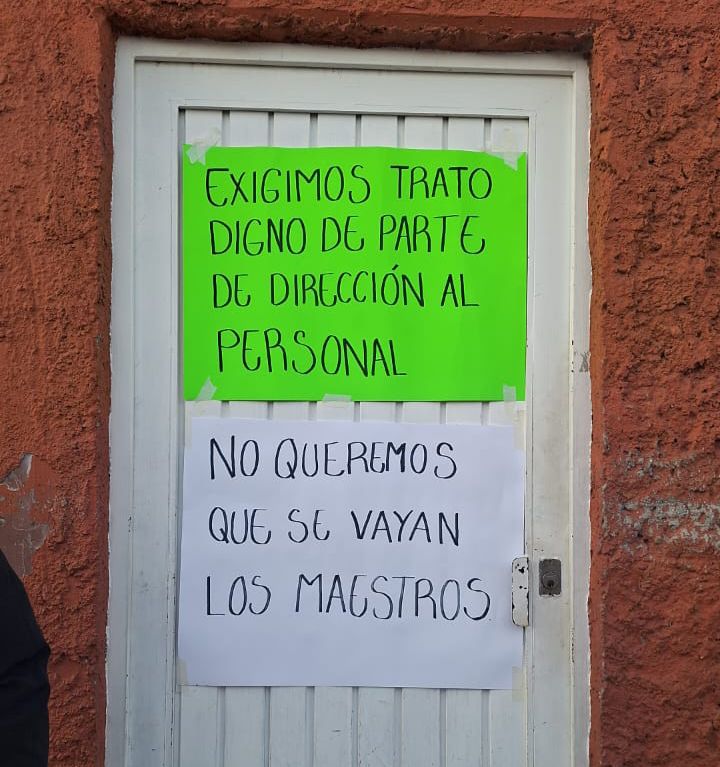 EXIGIMOS TRATO
DIGNO DE PARTE
DE DIRECCIÓN AL
PERSONAL
NO QUEREMOS
QUE SE VAYAN
LOS MAESTROS